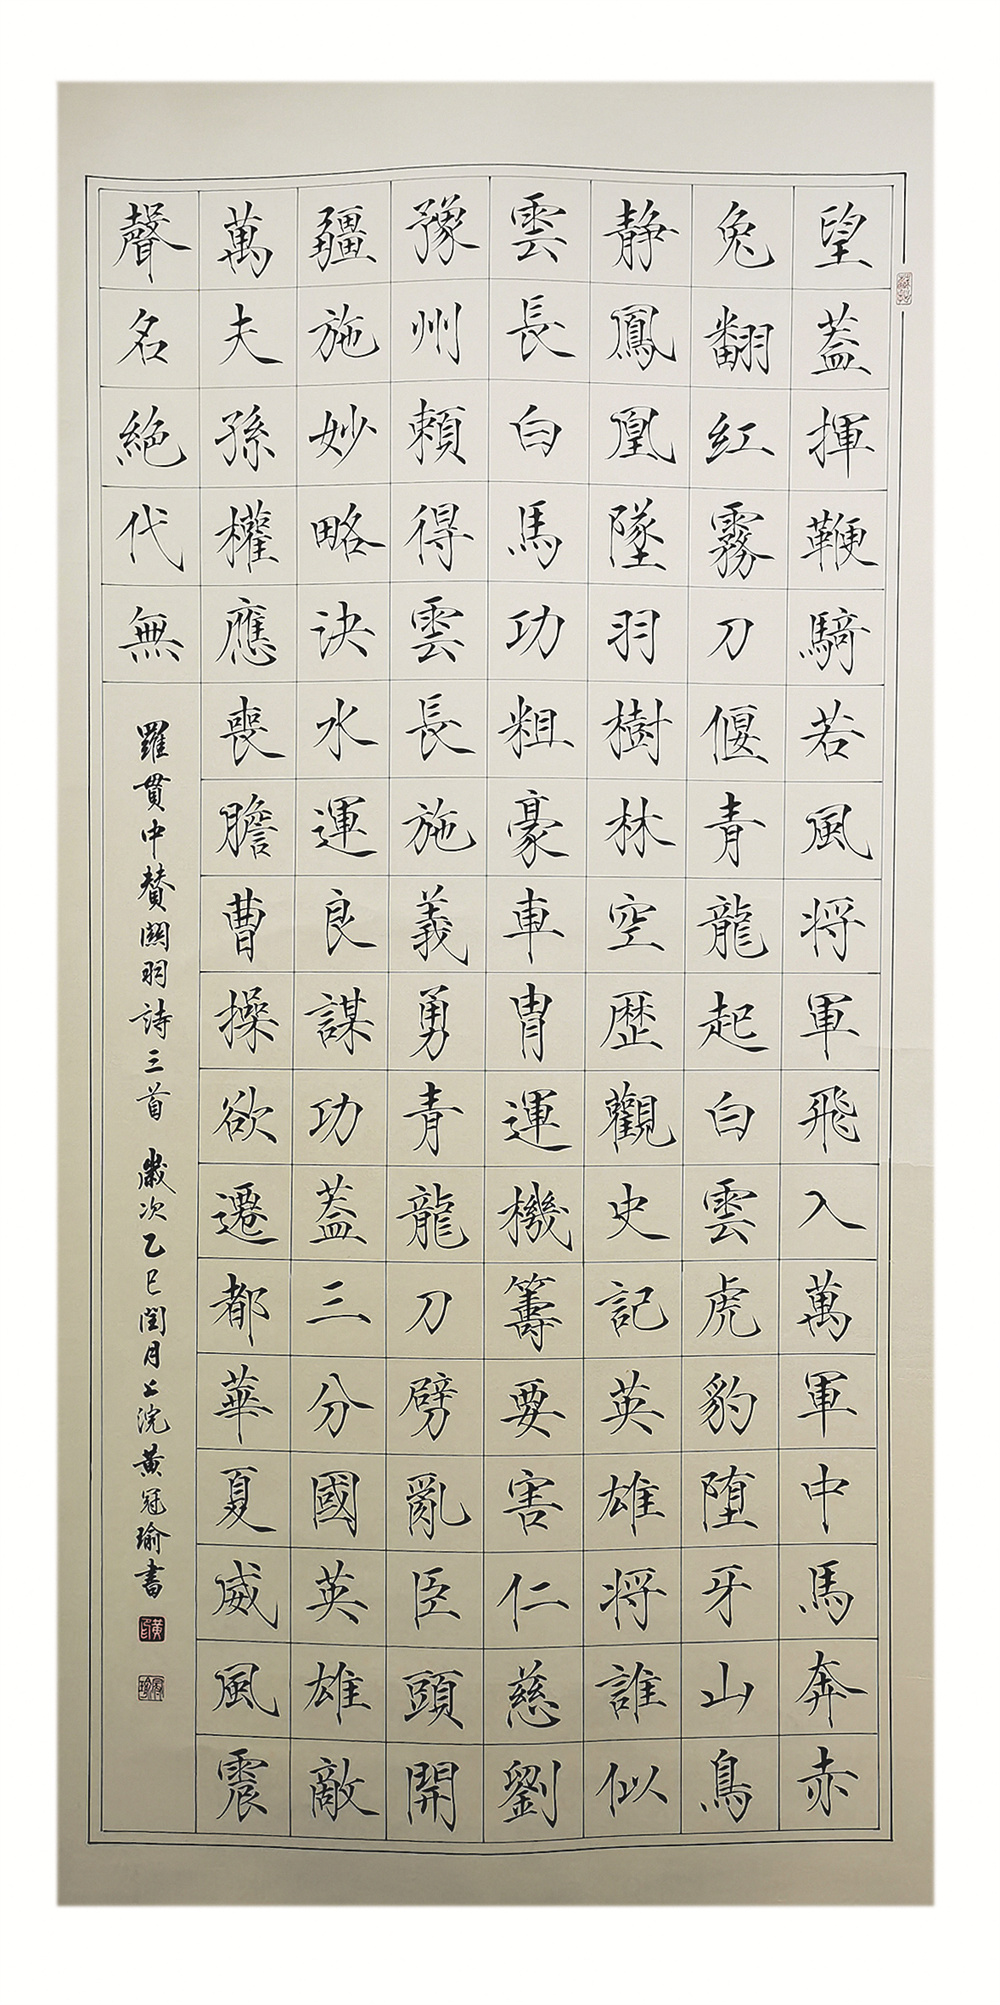 望蓋揮鞭騎若風將軍飛入萬軍中馬奔赤
兔翻紅霧刀偃青龍起白雲虎豹墮牙山鳥
静鳳凰墜羽樹林空歷觀史記英雄將誰似
雲長白馬功粗豪車胄運機籌要害仁慈劉
豫州賴得雲長施義勇青龍刀劈亂臣頭開
疆施妙略決水運良謀功蓋三分國英雄敵
萬夫孫權應喪膽曹操欲遷都華夏威風震
聲名絕代無
羅貫中贊關羽詩三首 歲次乙巳閏月上浣黃冠瑜書